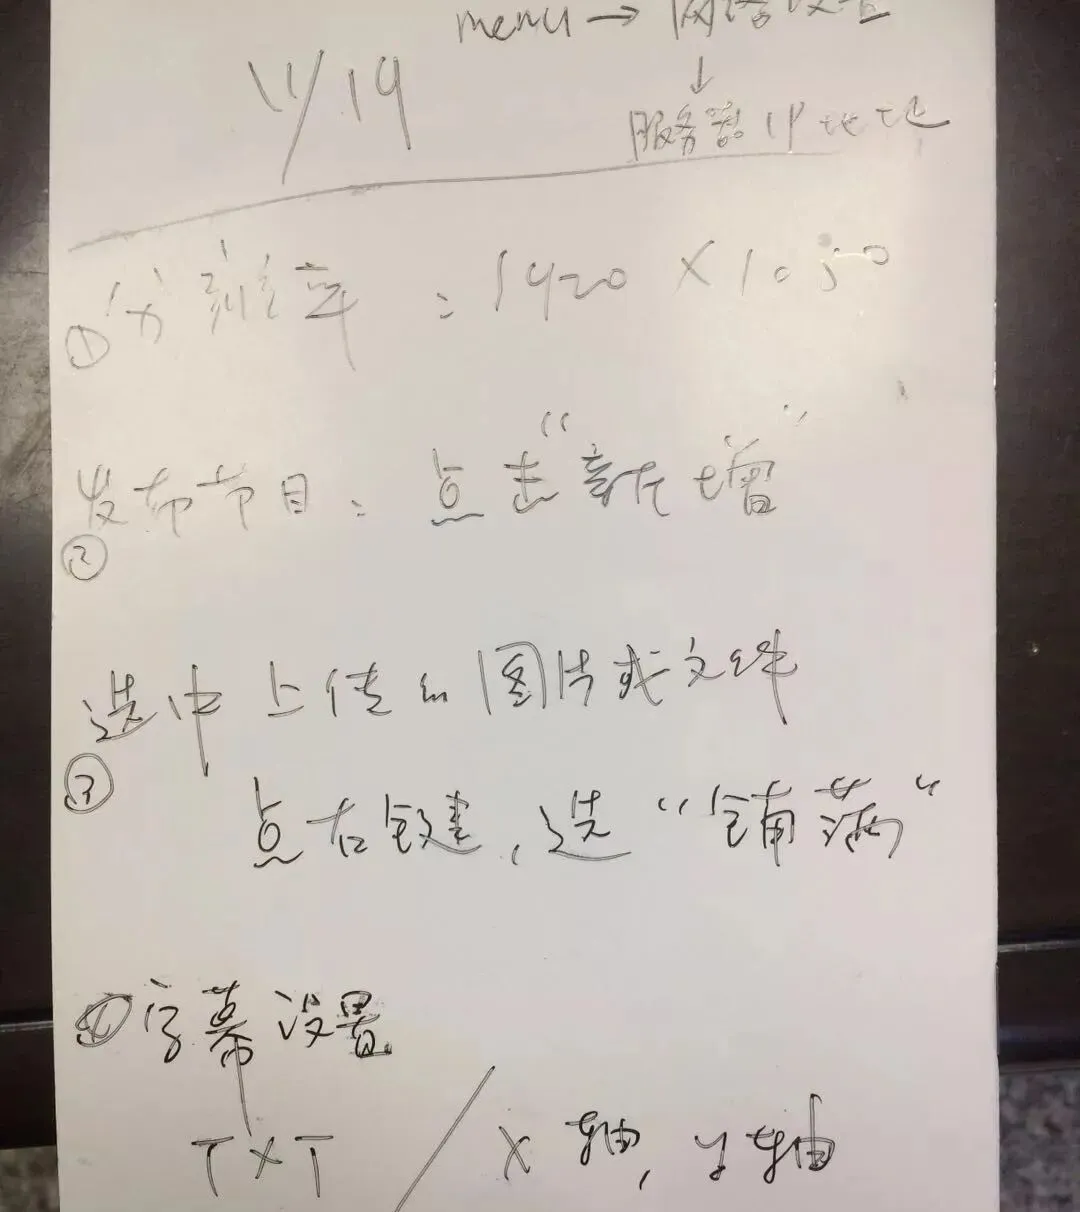 menu → 网络设置
↓
11/19
服务器IP地址
① 分辨率：1920×1050
② 发布节目：点击“新增”
③ 选中上传的图片或文件
点右键，选“铺满”
④ 字幕设置
TXT / X轴, y轴